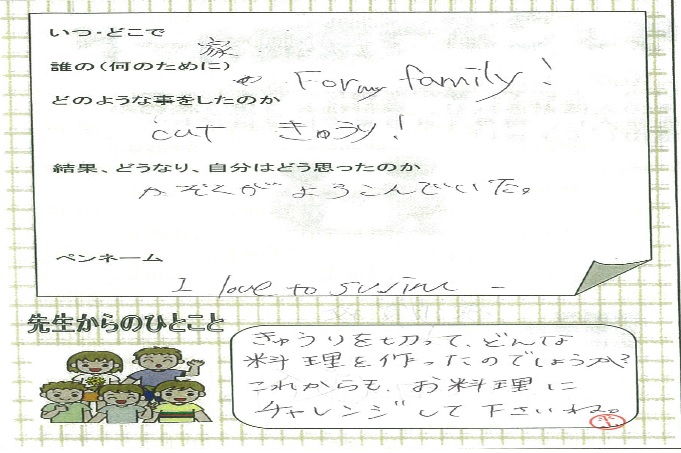 いつ・どこで
家
誰の(何のために)
For my family!
どのような事をしたのか
cut きゅうり!
結果、どうなり、自分はどう思ったのか
かぞくがよろこんでいた。
ペンネーム
I love to
先生からのひとこと
きゅうりを切って、どんな
料理を作ったのでしょうか?
これからも、お料理に
チャレンジして下さいね。